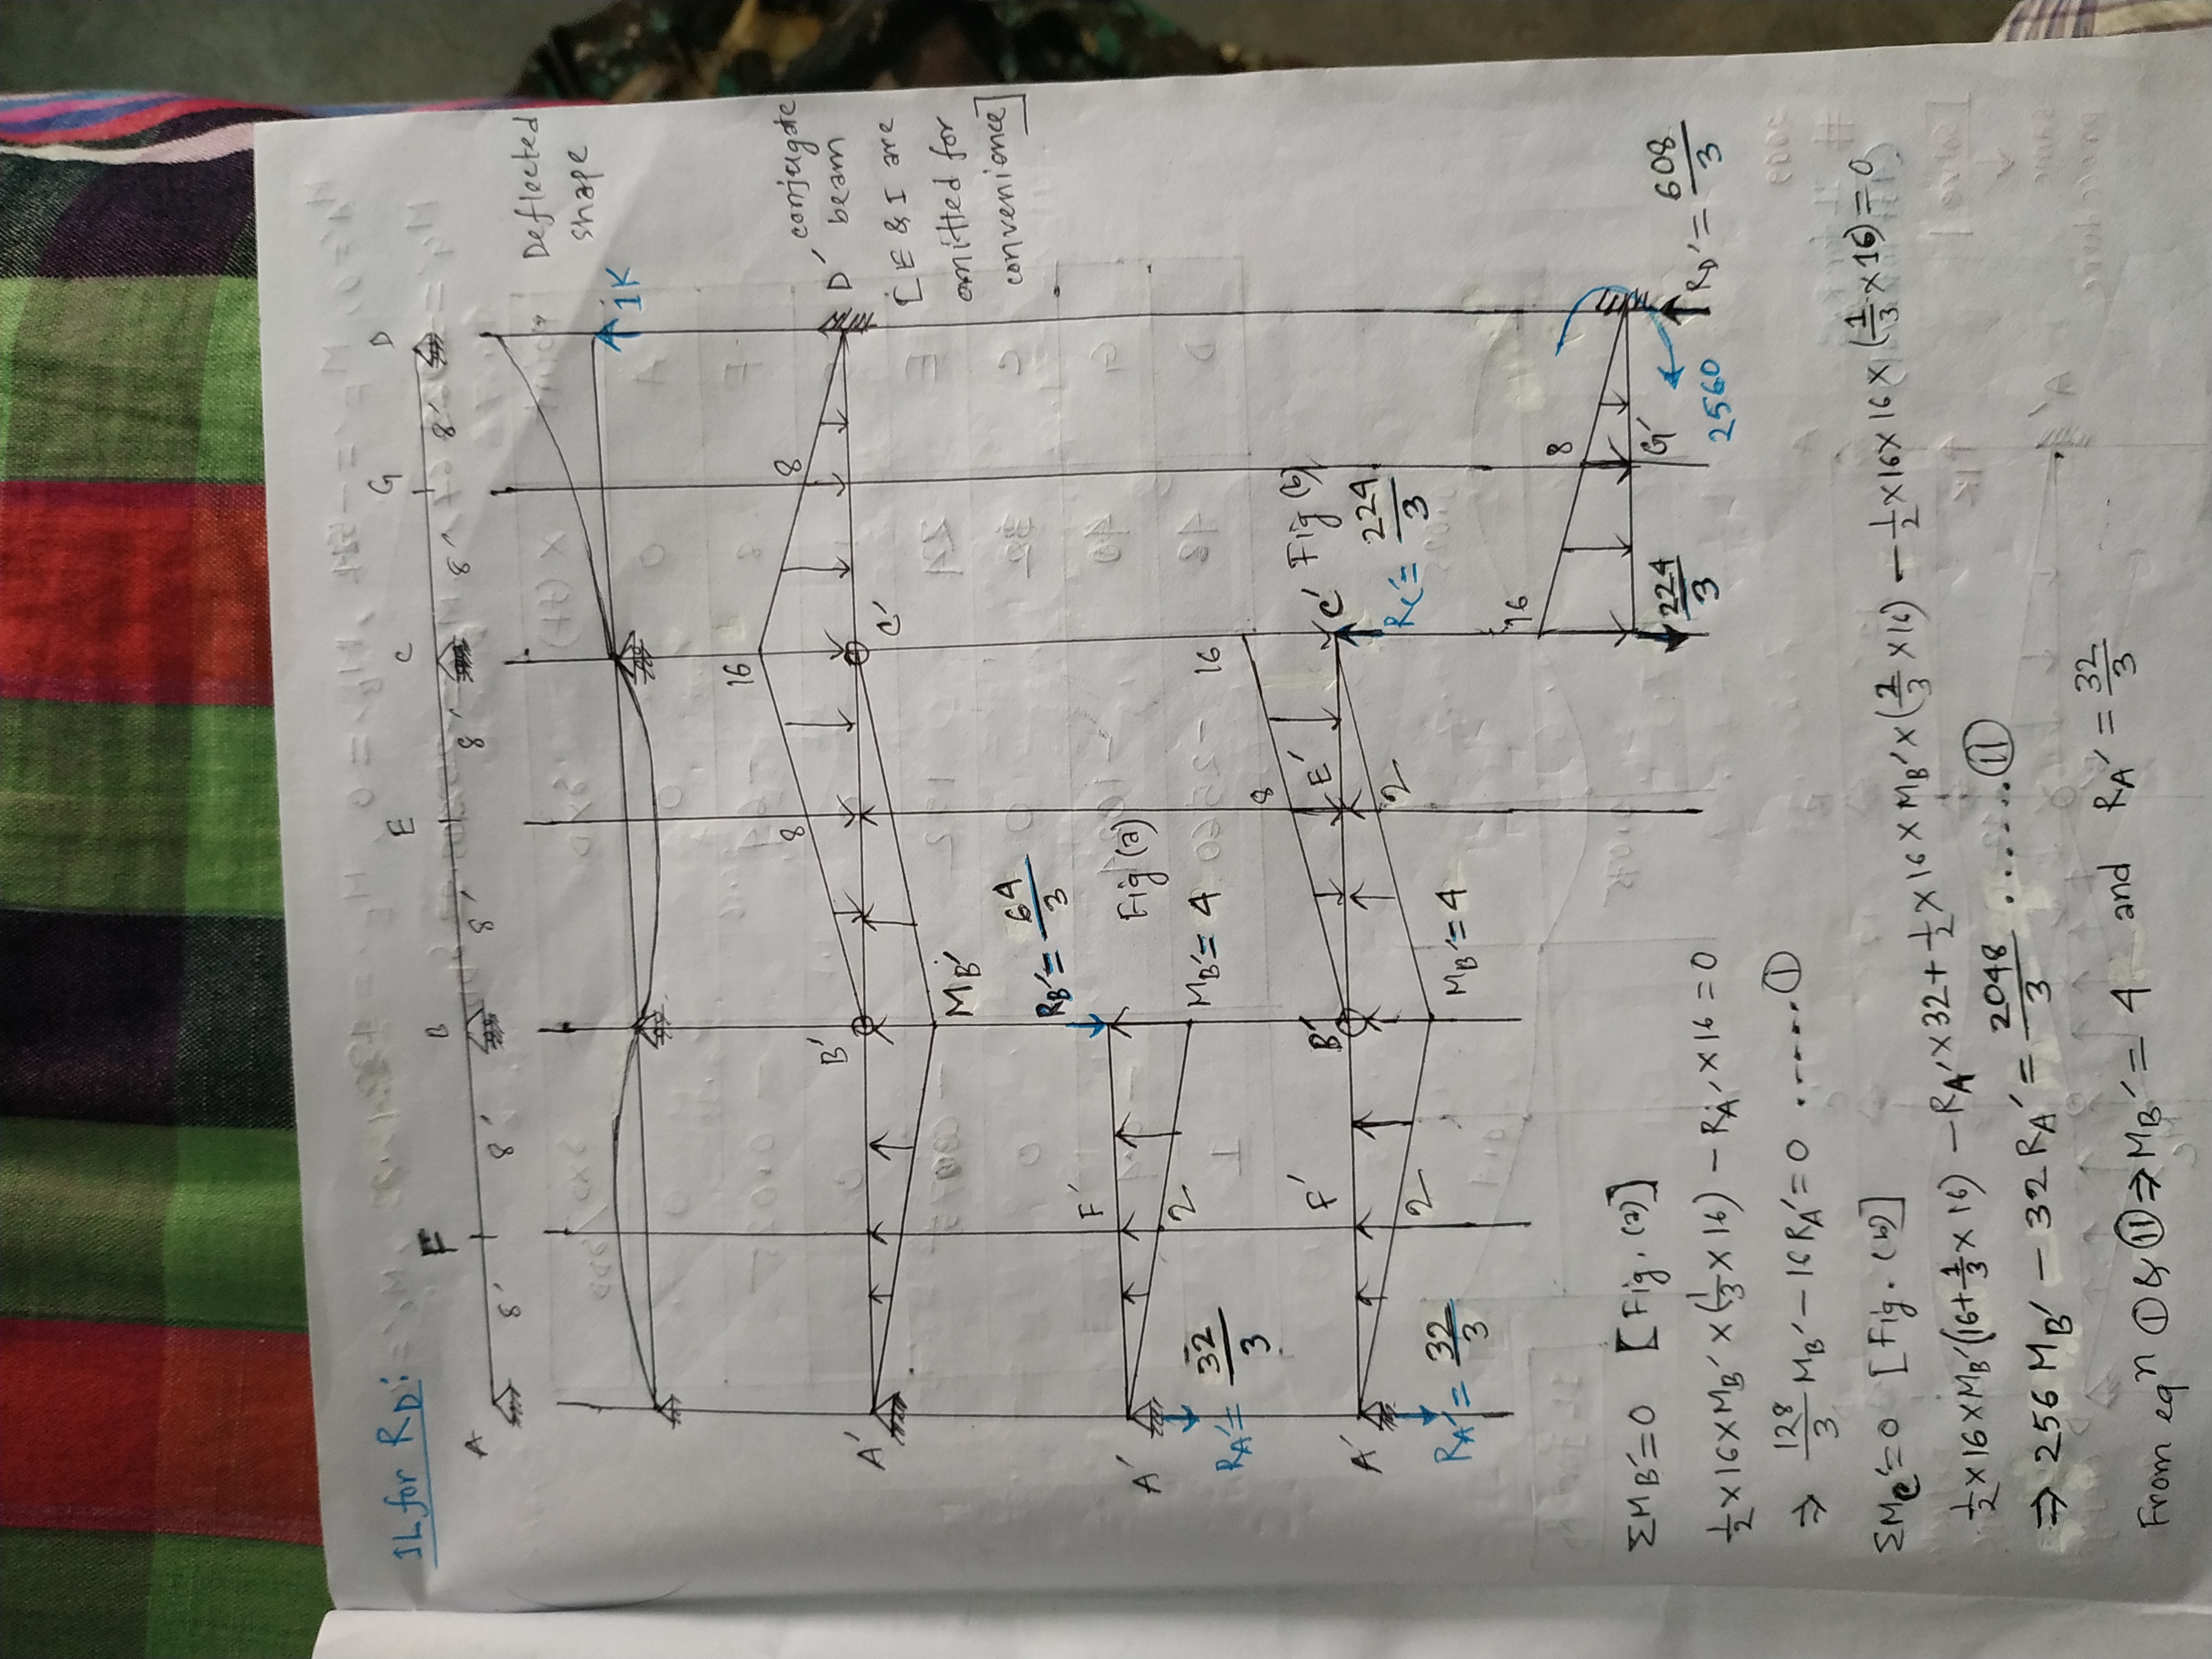 IL for R_D:
A F B E C G D
8' 8' 8' 8' 8' 8' 8'
Deflected
shape
1K
16
8 8
A' B' C' D'
conjugate
beam
[E & I are
omitted for
convenience]
M_B'
R_B' = 64/3
A' F'
2
Fig (a)
M_B' = 4
R_A' = 32/3
16
8
A' F' B' E' C' Fig (b)
2 2
R_C' = 224/3
M_B' = 4
R_A' = 32/3
16
8
G'
224/3
2560
R_D' = 608/3
ΣM_B' = 0 [Fig. (a)]
1/2 × 16 × M_B' × (1/3 × 16) - R_A' × 16 = 0
⇒ 128/3 M_B' - 16 R_A' = 0 ....... ①
ΣM_C' = 0 [Fig. (b)]
1/2 × 16 × M_B' (16 + 1/3 × 16) - R_A' × 32 + 1/2 × 16 × M_B' × (2/3 × 16) - 1/2 × 16 × 16 × (1/3 × 16) = 0
⇒ 256 M_B' - 32 R_A' = 2048/3 ......... ⑪
From eqn ① & ⑪ ⇒ M_B' = 4 and R_A' = 32/3